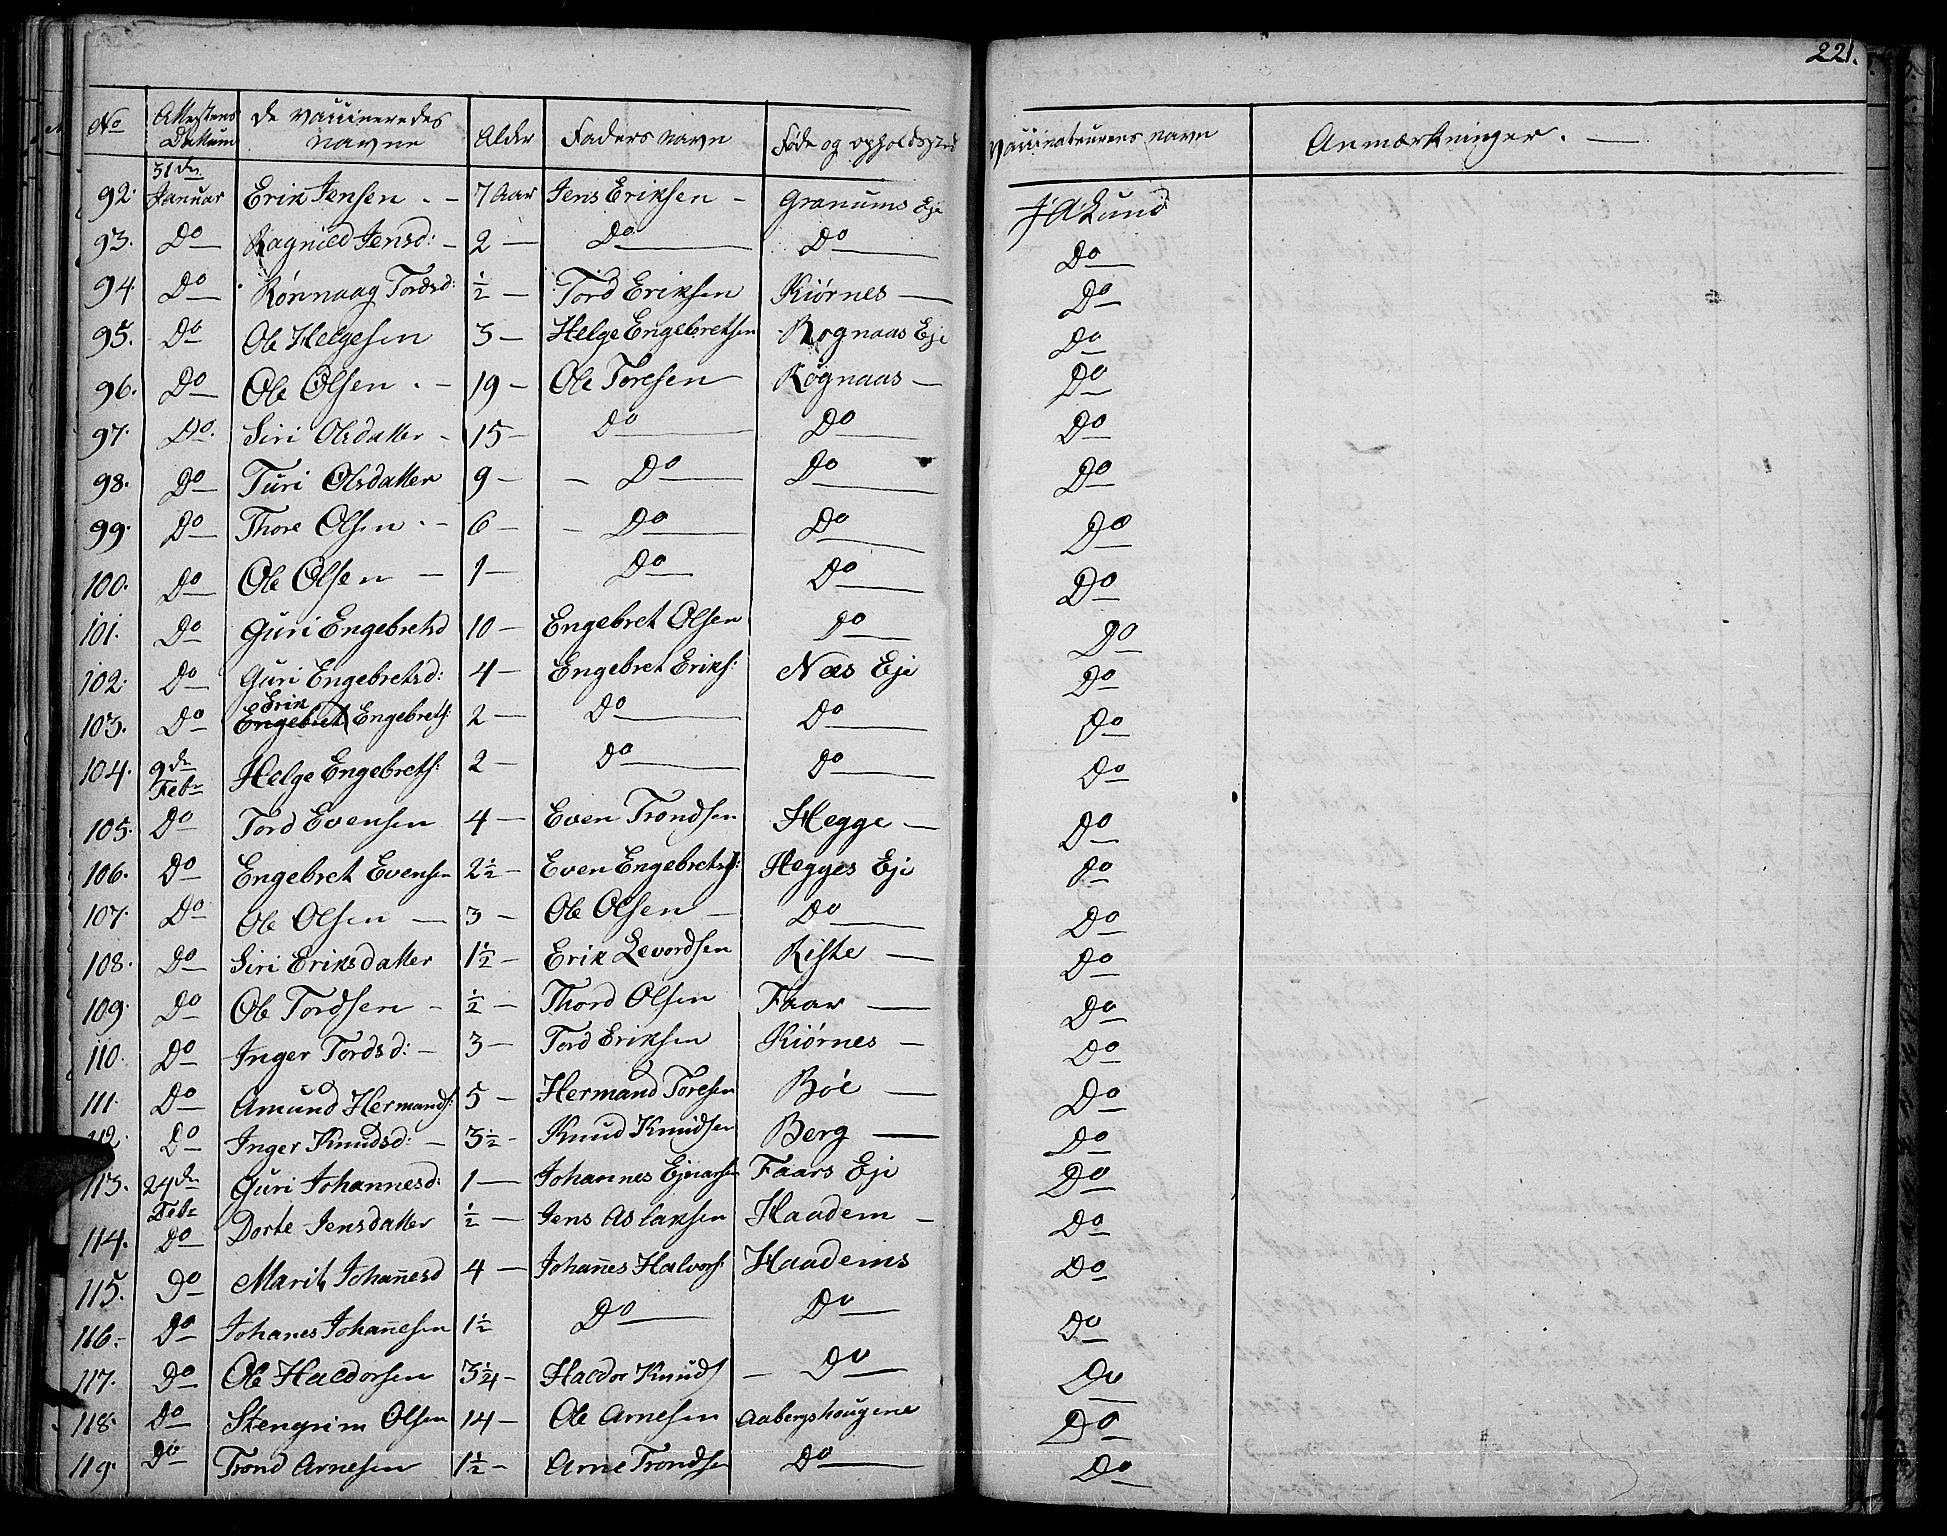 221.
No Attestens Datum de vaccineredes navne Alder Faders navn Føde og opholdssted Vaccinateurens navn Anmærkninger. —
92. 31de Januar Erik Jensen. — 7 Aar Jens Eriksen — Granums Eje J A Lund
93. Do Ragnild Jensd: — 2 — Do Do Do
94 Do Rønnaug Tordsd: ½ — Tord Eriksen Kiørnes — Do
95. Do Ole Helgesen 3 — Helge Engebretsen Rognaas Eje Do
96. Do Ole Olsen. — 19 — Ole Toresen Rognaas — Do
97. Do. Siri Olsdatter — 15 — Do Do Do
98. Do Turi Olsdatter 9 — — Do Do Do
99. Do Thore Olsen. — 6 — — Do Do Do
100. Do Ole Olsen — 1 — Do Do Do
101. Do Guri Engebretsd 10 — Engebret Olsen Do Do
102. Do Guri Engebretsd: 4 — Engebret Eriks: Næs Eje Do
103. Do Engebret Erik Engebrets: 2 — Do Do Do
104. 9de Febr Helge Engebrets: 2 — Do Do Do
105. Do Tord Evensen 4 — Even Trondsen Hegge — Do
106. Do Engebret Evensen 2½ — Even Engebrets: Hegges Eje Do
107. Do Ole Olsen — 3 — Ole Olsen — Do Do
108. Do Siri Eriksdatter 1½ — Erik Levordsen Riste — Do
109. Do Ole Tordsen — ½ — Thord Olsen Faar — Do
110. Do Inger Tordsd: — 3 — Tord Eriksen Kiørnes — Do
111. Do Amund Hermands: 5 — Hermand Toresen Böe — Do
112. Do Inger Knudsd: — 3½ — Knud Knudsen Berg — Do
113. 24de Febr Guri Johannesd: 1 — Johannes Ejnarsen Faars Eje Do
114. Do Dorte Jensdatter ½ — Jens Aslaksen Haadem — Do
115. Do Marit Johan̅esd 4 — Johan̅es Halvors: Haadems Do
116. — Do Johanes Johan̅esen 1½ Do Do Do
117. Do Ole Haldorsen 3¼ — Haldor Knuds — Do Do
118. Do Stengrim Olsen 14 — Ole Arnesen Aabergshougene Do
119. Do Trond Arnesen 1½ — Arne Trondsen Do Do